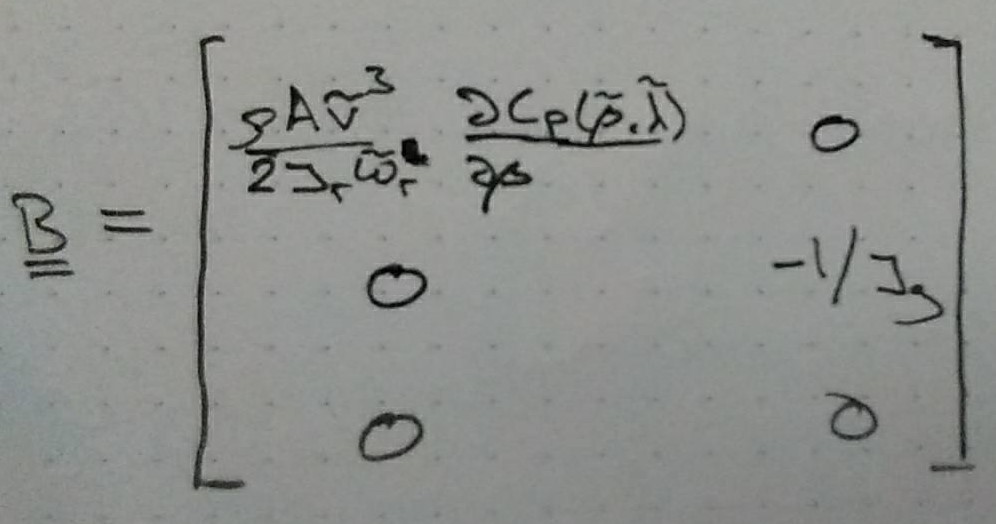 B = [ ρAṽ³/(2J_r ω̃_r) ∂C_P(β̃,λ̃)/∂β 0
0 -1/J_g
0 0 ]